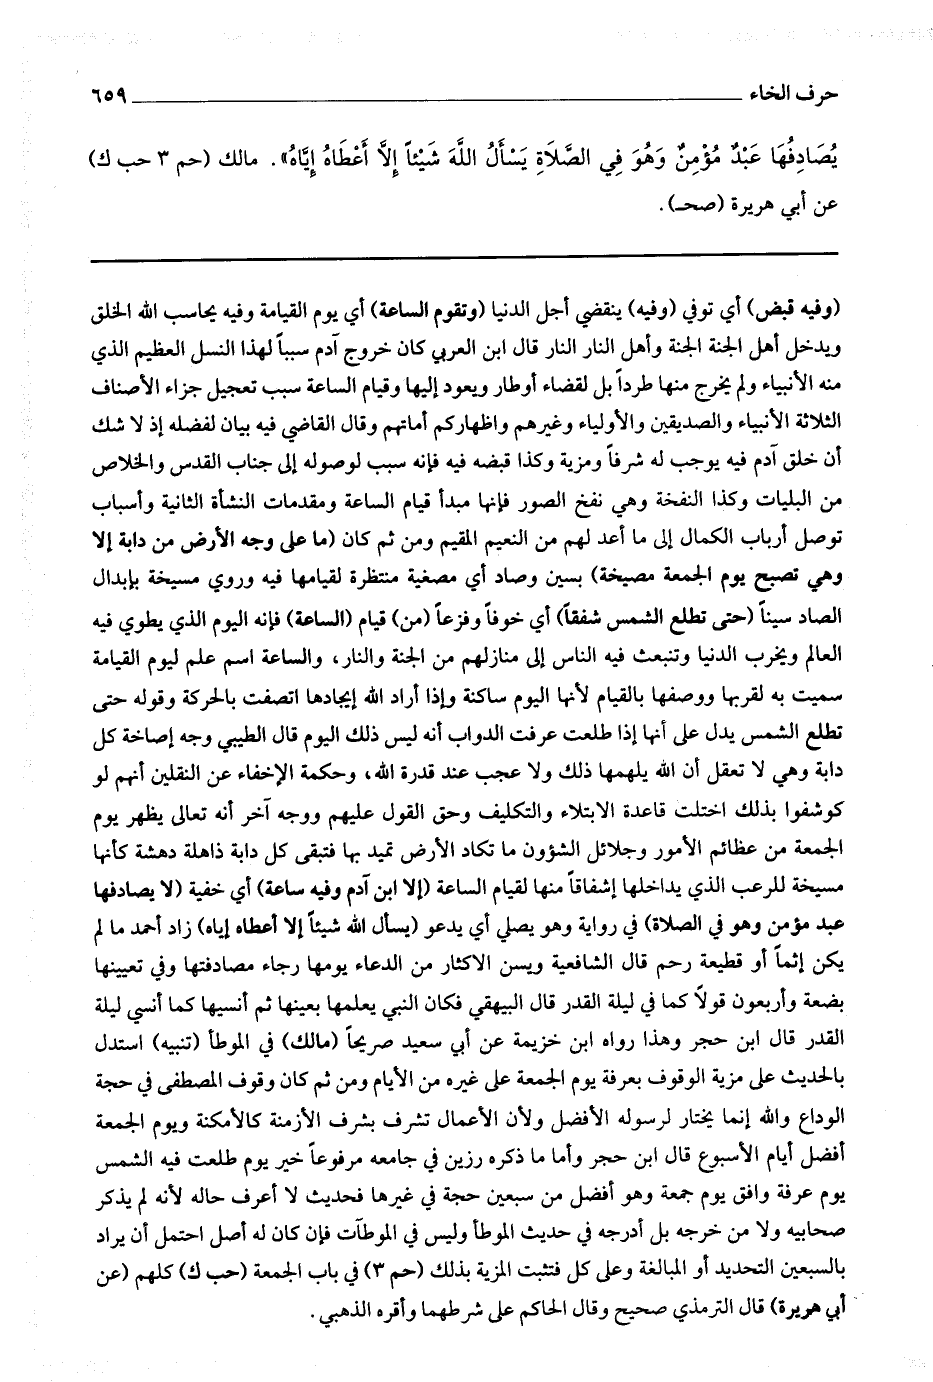 حرف الخاء ٦٥٩
يُصَادِفُهَا عَبْدٌ مُؤْمِنٌ وَهُوَ فِي الصَّلَاةِ يَسْأَلُ اللَّهَ شَيْئاً إِلاَّ أَعْطَاهُ إِيَّاهُ». مالك (حم ٣ حب ك)
عن أبي هريرة (صحـ).
(وفيه قبض) أي توفي (وفيه) ينقضي أجل الدنيا (وتقوم الساعة) أي يوم القيامة وفيه يحاسب الله الخلق
ويدخل أهل الجنة الجنة وأهل النار النار قال ابن العربي كان خروج آدم سبباً لهذا النسل العظيم الذي
منه الأنبياء ولم يخرج منها طرداً بل لقضاء أوطار ويعود إليها وقيام الساعة سبب تعجيل جزاء الأصناف
الثلاثة الأنبياء والصديقين والأولياء وغيرهم واظهاركم أماتهم وقال القاضي فيه بيان لفضله إذ لا شك
أن خلق آدم فيه يوجب له شرفاً ومزية وكذا قبضه فيه فإنه سبب لوصوله إلى جناب القدس والخلاص
من البليات وكذا النفخة وهي نفخ الصور فإنها مبدأ قيام الساعة ومقدمات النشأة الثانية وأسباب
توصل أرباب الكمال إلى ما أعد لهم من النعيم المقيم ومن ثم كان (ما على وجه الأرض من دابة إلا
وهي تصبح يوم الجمعة مصيخة) بسين وصاد أي مصغية منتظرة لقيامها فيه وروي مسيخة بإبدال
الصاد سيناً (حتى تطلع الشمس شفقاً) أي خوفاً وفزعاً (من) قيام (الساعة) فإنه اليوم الذي يطوي فيه
العالم ويخرب الدنيا وتنبعث فيه الناس إلى منازلهم من الجنة والنار، والساعة اسم علم ليوم القيامة
سميت به لقربها ووصفها بالقيام لأنها اليوم ساكنة وإذا أراد الله إيجادها اتصفت بالحركة وقوله حتى
تطلع الشمس يدل على أنها إذا طلعت عرفت الدواب أنه ليس ذلك اليوم قال الطيبي وجه إصاخة كل
دابة وهي لا تعقل أن الله يلهمها ذلك ولا عجب عند قدرة الله، وحكمة الإخفاء عن النقلين أنهم لو
كوشفوا بذلك اختلت قاعدة الابتلاء والتكليف وحق القول عليهم ووجه آخر أنه تعالى يظهر يوم
الجمعة من عظائم الأمور وجلائل الشؤون ما تكاد الأرض تميد بها فتبقى كل دابة ذاهلة دهشة كأنها
مسيخة للرعب الذي يداخلها إشفاقاً منها لقيام الساعة (إلا ابن آدم وفيه ساعة) أي خفية (لا يصادفها
عبد مؤمن وهو في الصلاة) في رواية وهو يصلي أي يدعو (يسأل الله شيئاً إلا أعطاه إياه) زاد أحمد ما لم
يكن إثماً أو قطيعة رحم قال الشافعية ويسن الاكثار من الدعاء يومها رجاء مصادفتها وفي تعيينها
بضعة وأربعون قولاً كما في ليلة القدر قال البيهقي فكان النبي يعلمها بعينها ثم أنسيها كما أنسي ليلة
القدر قال ابن حجر وهذا رواه ابن خزيمة عن أبي سعيد صريحاً (مالك) في الموطأ (تنبيه) استدل
بالحديث على مزية الوقوف بعرفة يوم الجمعة على غيره من الأيام ومن ثم كان وقوف المصطفى في حجة
الوداع والله إنما يختار لرسوله الأفضل ولأن الأعمال تشرف بشرف الأزمنة كالأمكنة ويوم الجمعة
أفضل أيام الأسبوع قال ابن حجر وأما ما ذكره رزين في جامعه مرفوعاً خير يوم طلعت فيه الشمس
يوم عرفة وافق يوم جمعة وهو أفضل من سبعين حجة في غيرها فحديث لا أعرف حاله لأنه لم يذكر
صحابيه ولا من خرجه بل أدرجه في حديث الموطأ وليس في الموطآت فإن كان له أصل احتمل أن يراد
بالسبعين التحديد أو المبالغة وعلى كل فتثبت المزية بذلك (حم ٣) في باب الجمعة (حب ك) كلهم (عن
أبي هريرة) قال الترمذي صحيح وقال الحاكم على شرطهما وأقره الذهبي.